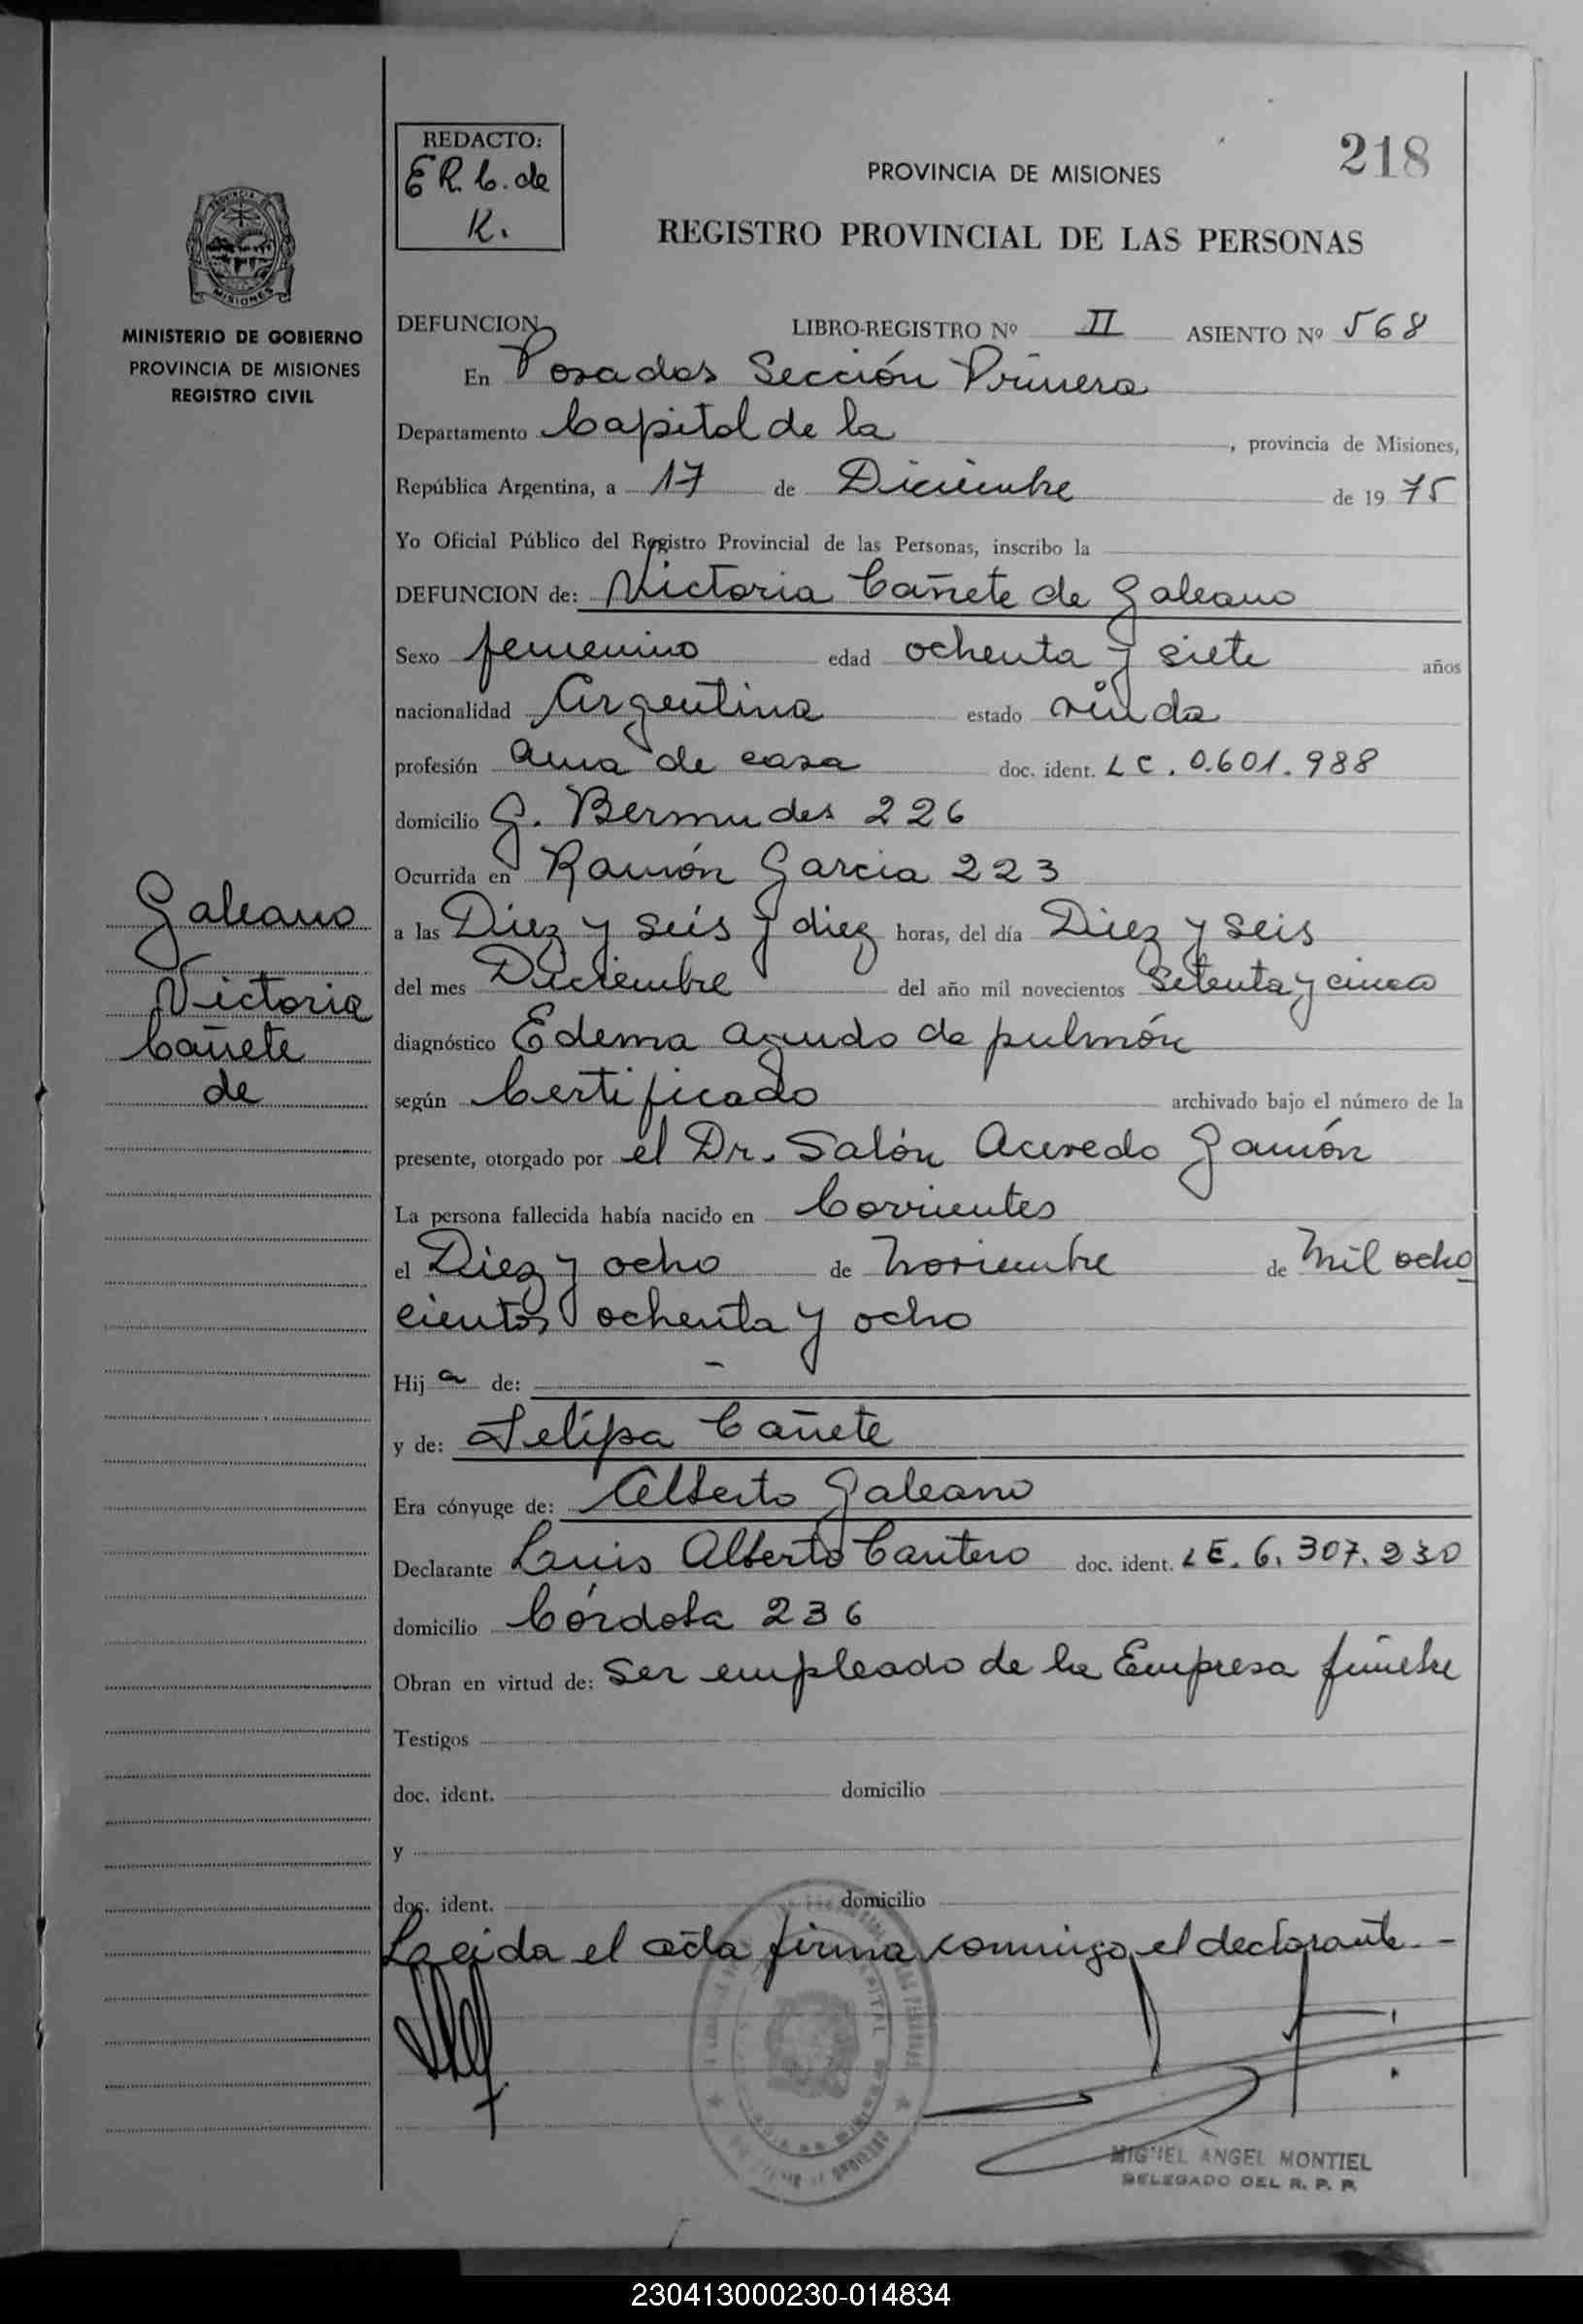 218
REDACTO:
E R. C. de
K.
PROVINCIA DE MISIONES
REGISTRO PROVINCIAL DE LAS PERSONAS
MISIONES
MINISTERIO DE GOBIERNO
PROVINCIA DE MISIONES
REGISTRO CIVIL
Galeano
Victoria
Cañete
de
DEFUNCION LIBRO-REGISTRO Nº II ASIENTO Nº 568
En Posadas Sección Primera
Departamento Capital de la , provincia de Misiones,
República Argentina, a 17 de Diciembre de 1975
Yo Oficial Público del Registro Provincial de las Personas, inscribo la
DEFUNCION de: Victoria Cañete de Galeano
Sexo femenino edad ochenta y siete años
nacionalidad Argentina estado viuda
profesión ama de casa doc. ident. LC. 0.601.988
domicilio G. Bermudes 226
Ocurrida en Ramón Garcia 223
a las Diez y seis y diez horas, del día Diez y seis
del mes Diciembre del año mil novecientos Setenta y cinco
diagnóstico Edema agudo de pulmón
según Certificado archivado bajo el número de la
presente, otorgado por el Dr. Salón Acevedo Gamón
La persona fallecida había nacido en Corrientes
el Diez y ocho de Noviembre de Mil ocho
cientos ochenta y ocho
Hija de: -
y de: Felipa Cañete
Era cónyuge de: Alberto Galeano
Declarante Luis Alberto Cantero doc. ident. LE. 6.307.230
domicilio Córdoba 236
Obran en virtud de: Ser empleado de la Empresa fúnebre
Testigos
doc. ident. domicilio
y
doc. ident. domicilio
Laeida el acta firma conmigo el declarante -
MIGUEL ANGEL MONTIEL
DELEGADO DEL R. P. P.
230413000230-014834